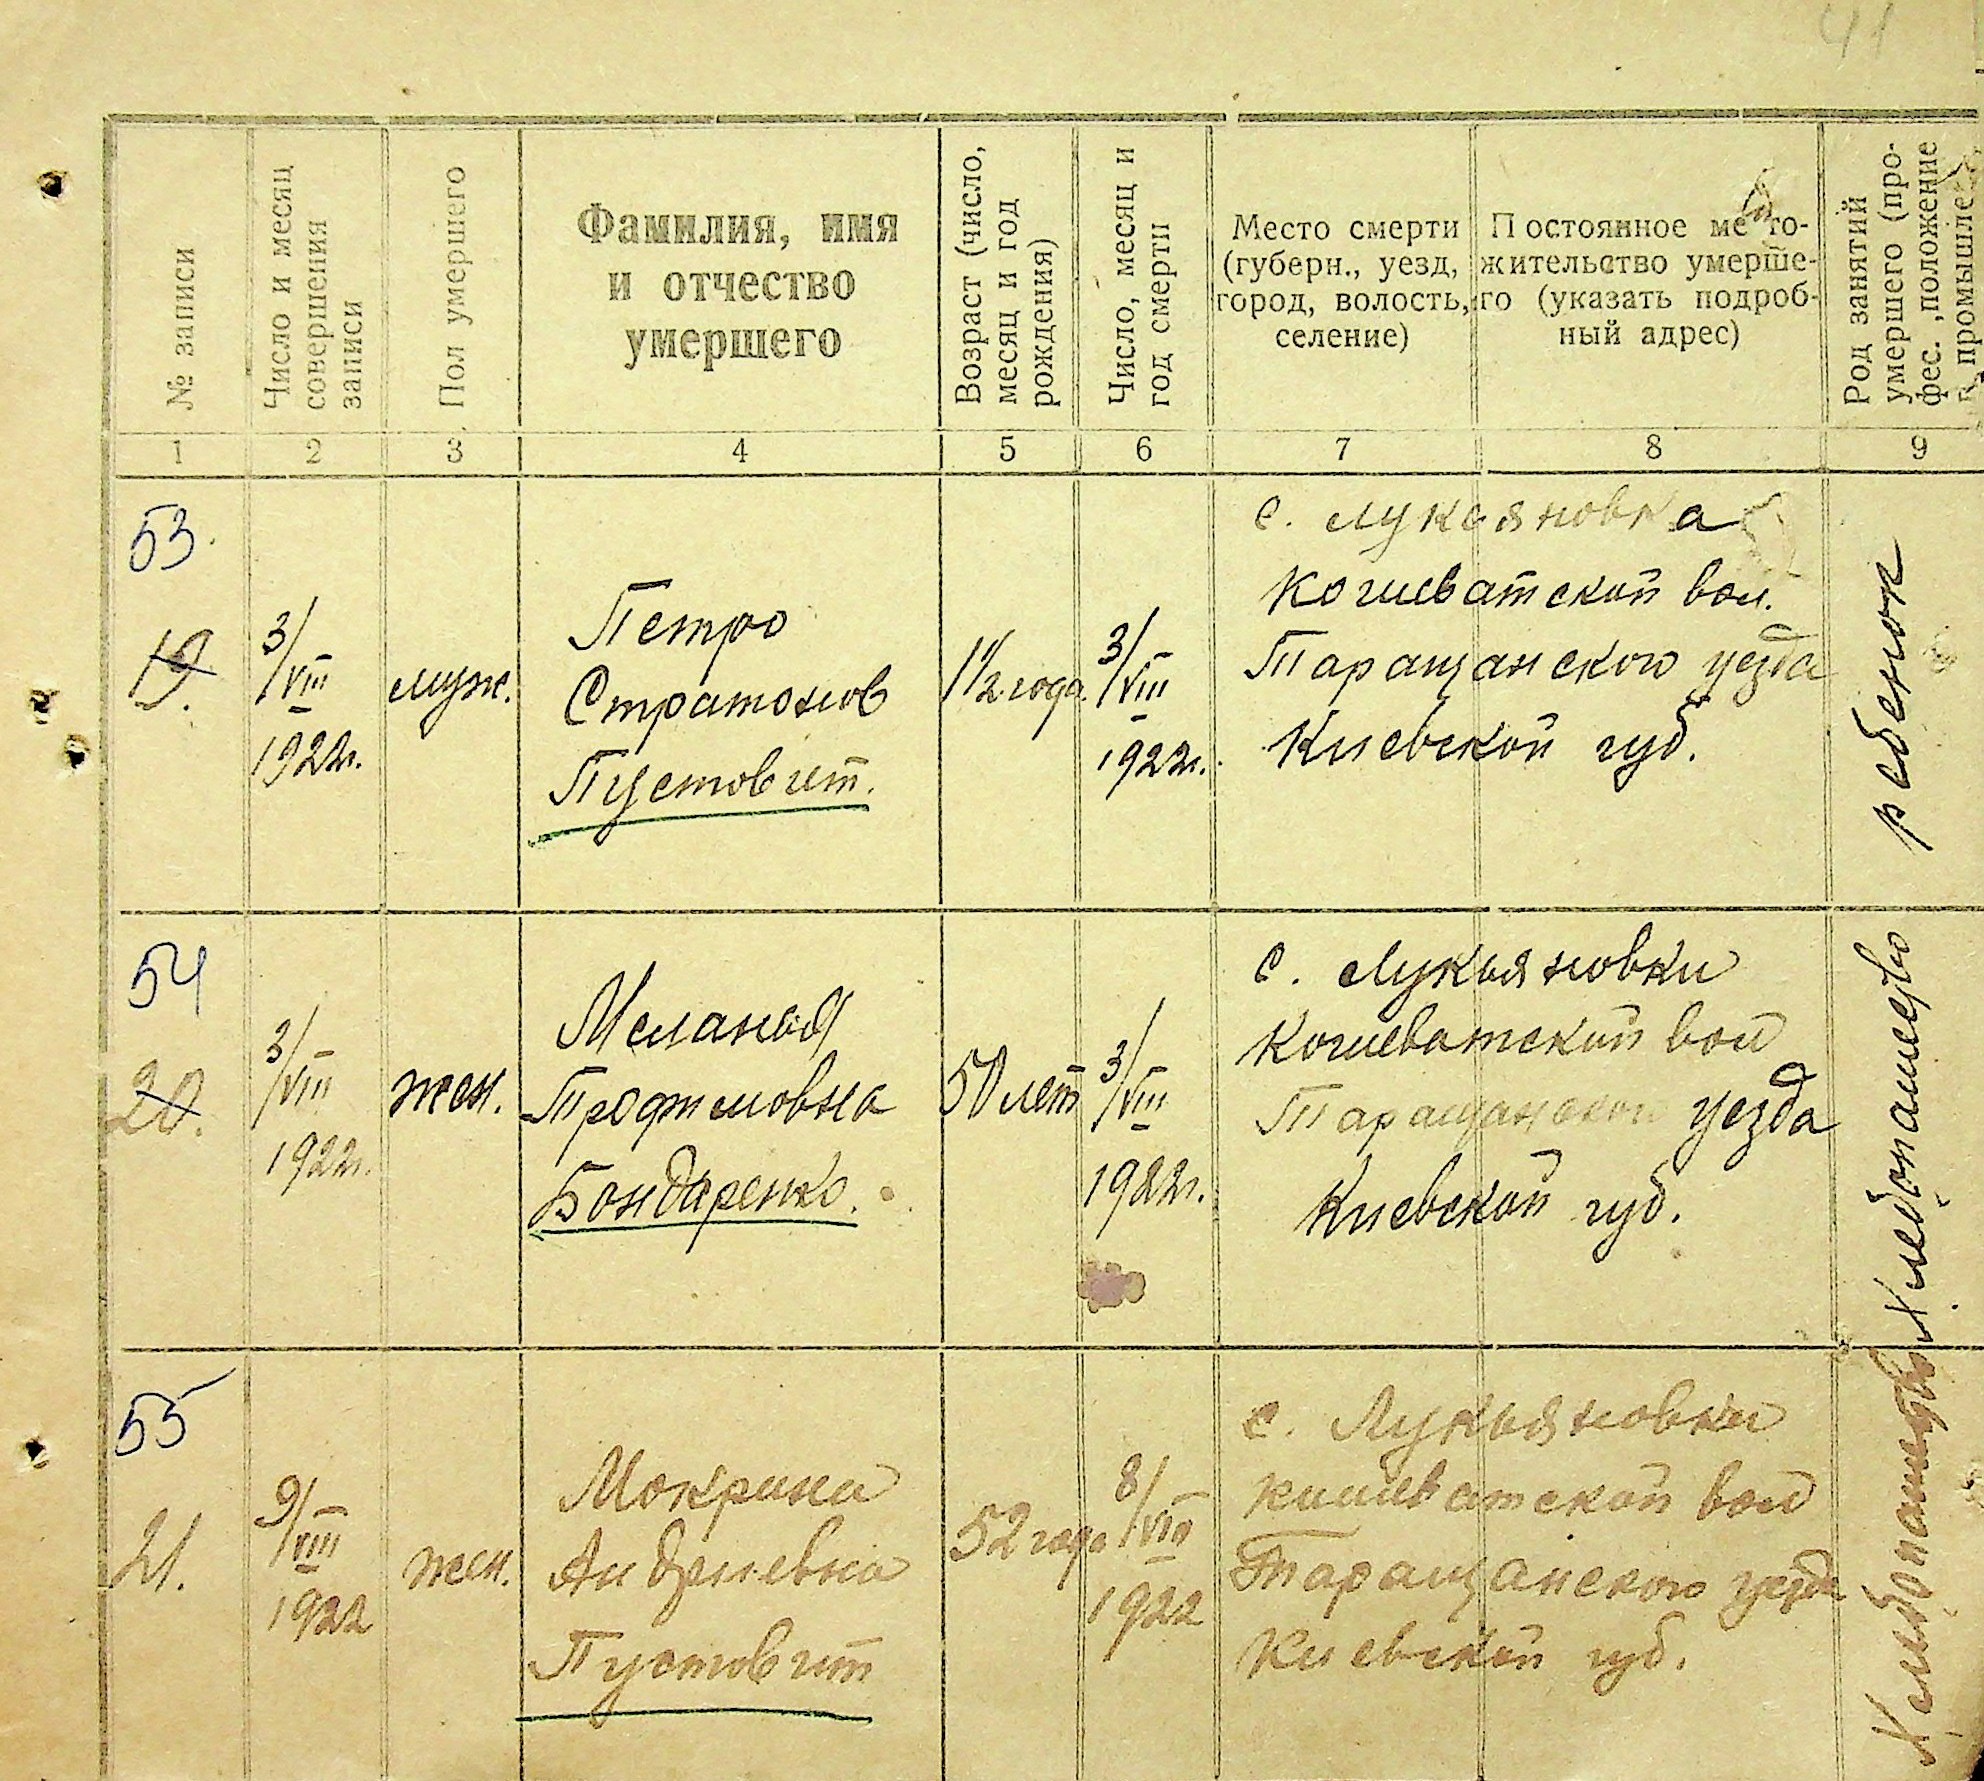 41
№ записи
Число и месяц
совершения
записи
Пол умершего
Фамилия, имя
и отчество
умершего
Возраст (число,
месяц и год
рождения)
Число, месяц и
год смерти
Место смерти
(губерн., уезд,
город, волость,
селение)
Постоянное место-
жительство умерше-
го (указать подроб-
ный адрес)
Род занятий
умершего (про-
фес., положение
в промышлен
1 2 3 4 5 6 7 8 9
53.
19.
3/VIII
1922г.
муж.
Петро
Стратонов
Пустовит.
1 1/2 года
3/VIII
1922г.
с. Лукьяновка
Кошеватской вол.
Таращанского уезда
Киевской губ.
ребенок
54
20.
3/VIII
1922г.
жен.
Меланья
Трофимовна
Бондаренко.
50 лет
3/VIII
1922г.
с. Лукьяновки
Кошеватской вол
Таращанского уезда
Киевской губ.
Хлебопашество
55
21.
9/VIII
1922
жен.
Мокрина
Андриевна
Пустовит
52 года
8/VIII
1922
с. Лукьяновки
Кошеватской вол
Таращанского уезда
Киевской губ.
Хлебопашество